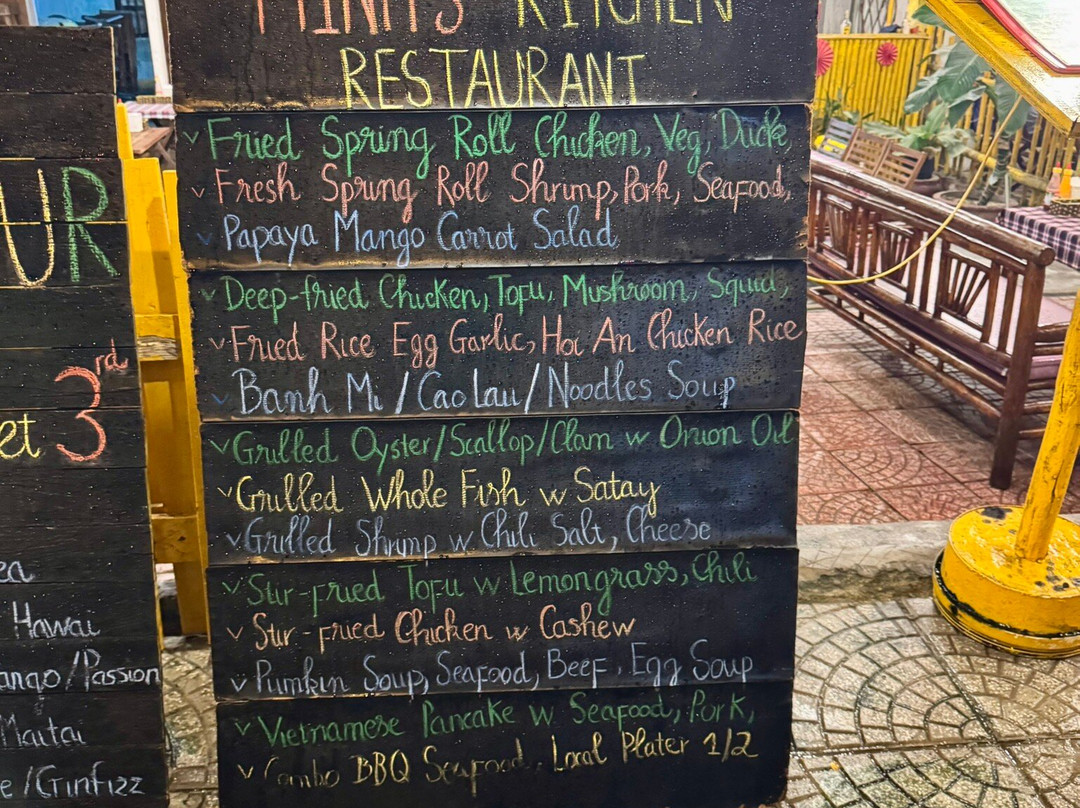 MINH'S KITCHEN
RESTAURANT
Fried Spring Roll Chicken, Veg, Duck,
Fresh Spring Roll Shrimp, Pork, Seafood,
Papaya Mango Carrot Salad
Deep-fried Chicken, Tofu, Mushroom, Squid,
Fried Rice Egg Garlic, Hoi An Chicken Rice
Banh Mi / Cao Lau / Noodles Soup
Grilled Oyster/Scallop/Clam w Onion Oil
Grilled Whole Fish w Satay
Grilled Shrimp w Chili Salt, Cheese
Stir-fried Tofu w Lemongrass, Chili
Stir-fried Chicken w Cashew
Pumkin Soup, Seafood, Beef, Egg Soup
Vietnamese Pancake w Seafood, Pork,
Combo BBQ Seafood, Local Plater 1/2
UR
3rd
et
ea
Hawai
ango/Passion
Maitai
e/Ginfizz